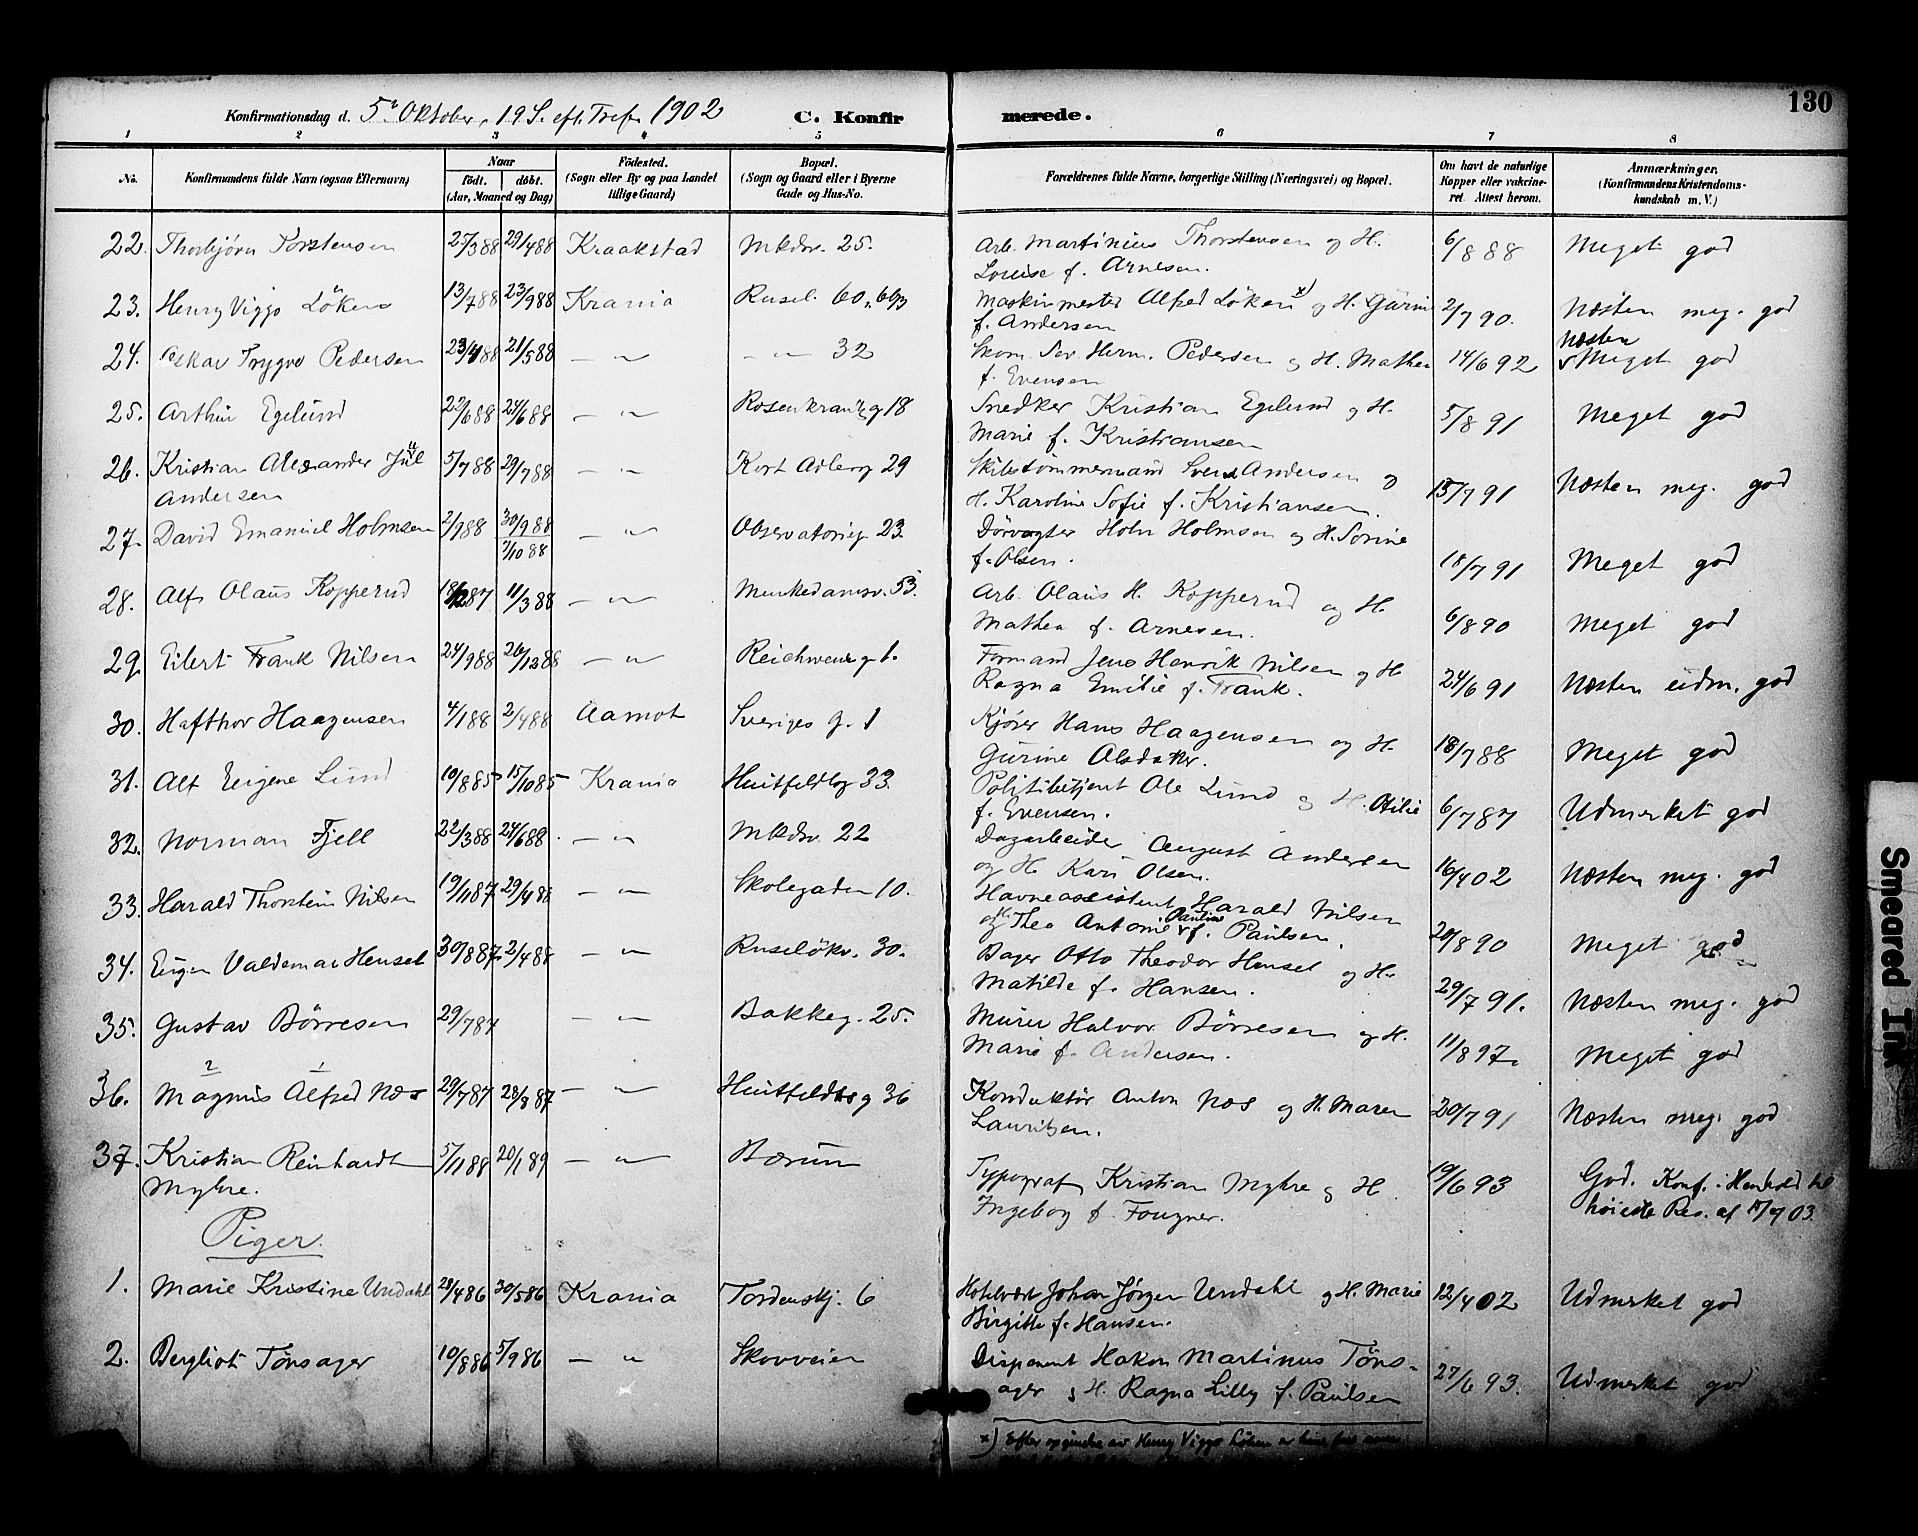 130
Konfirmationsdag d. 5te Oktober, 19 S. eft. Tref. 1902 C. Konfirmerede.
1 2 3 4 5 6 7 8
No. Konfirmandens fulde Navn (ogsaa Efternavn) Naar födt. döbt. (Aar, Maaned og Dag) Födested. (Sogn eller By og paa Landet tillige Gaard) Bopæl. (Sogn og Gaard eller i Byerne Gade og Hus-No. Forældrenes fulde Navne, borgerlige Stilling (Næringsvei) og Bopæl. Om havt de naturlige Kopper eller vakcineret. Attest herom. Anmærkninger. (Konfirmandens Kristendomskundskab m. V.)
22. Thorbjörn Torstensen 27/3 88 29/4 88 Kraakstad Mkdsv. 25. Arb. Martinius Thorstensen og H. 6/8 88 Meget god
Louise f. Arnesen.
23. Henry Viggo Löken 13/7 88 23/9 88 Krania Rusel. 60, 60/3 Maskinmester Alfred Löken x) og H. Gurine 2/7 90. Næsten meg. god
f. Andersen
24. Oskar Trygve Pedersen 23/4 88 21/5 88 — " — — " — 32 Skom. Sev. Herm. Pedersen og H. Mathea 14/6 92 næsten Meget god
f. Evensen
25. Arthur Egelund 22/6 88 24/6 88 — " — Rosenkrantzg 18 Snedker Kristian Egelund og H. 5/8 91 Meget god
Marie f. Kristiansen
26. Kristian Alexander Jul 5/7 88 29/7 88 — " — Kort Adlerg 29 Skibstömmermand Svend Andersen og 15/7 91 Næsten meg. god
Andersen H. Karoline Sofie f. Kristiansen.
27. David Emanuel Holmsen 2/9 88 30/9 88 — " — Observatorieg. 23 Dörvogter Holm Holmsen og H. Sorine 18/7 91 Meget god
7/10 88 f. Olsen.
28. Alf Olaus Kopperud 18/12 87 11/3 88 — " — Munkedamsv. 53. Arb. Olaus H. Kopperud og H. 6/8 90 Meget god
Mathea f. Arnesen.
29. Eilert Frank Nilsen 24/9 88 26/12 88 — " — Reichweins g. 1. Formand Jens Henrik Nilsen og H 24/6 91 Næsten udm. god
Ragna Emilie f. Frank.
30. Hafthor Haagensen 4/1 88 2/4 88 Aamot Sveriges g. 1 Kjörer Hans Haagensen og H. 18/7 88 Meget god
Gurine Alsdaker.
31. Alf Eugene Lund 10/8 85 15/10 85 Krania Huitfeldtsg 33 Politibetjent Ole Lund og H. Otilie 6/7 87 Udmerket god
f. Evensen.
32. Norman Fjell 22/3 88 24/6 88. — " — Mkdsv. 22 Dagarbeider August Andersen 16/4 02 Næsten meg. god
og H Kari Olsen.
33. Harald Thorstein Nilsen 19/11 87 29/4 88 — " — Skolegaden 10. Havneassistent Harald Nilsen 20/8 90 Meget god
og H. Thea Antonie Pauline f. Paulsen.
34. Eugen Valdemar Hensel 30/8 87. 2/4 88 — " — Ruselökv. 30. Bager Otto Theodor Hensel og H. 29/7 91. Næsten meg. god
Matilde f. Hansen.
35. Gustav Börresen 29/7 87 — " — Bakkeg. 25. Murer Halvor Börresen og H. 11/8 97. Meget god
Marie f. Andersen.
2 1
36. Magnus Alfred Næs 29/7 87 28/8 87 — " — Huitfeldtsg 36 Konduktör Anton Næs og H. Maren 20/7 91 Næsten meg. god
Lauritzen.
37. Kristian Reinhardt 5/11 88 20/1 89 — " — Bærum Typograf Kristian Myhre og H 19/6 93 God. Konf. i Henhold til
Myhre. Ingeborg f. Fougner. höieste Res. af 17/7 03.
Piger.
1. Marie Kristine Undahl 28/4 86 30/5 86 Krania Tordenskj. 6 Hotelvært Johan Jörgen Undahl og H. Marie 12/4 02 Udmerket god
Birgitte f. Hansen.
2. Bergliot Tönsager 10/8 86 5/9 86 — " Skovveien Disponent Hakon Martinus Töns- 27/6 93. Udmerket god
ager og H. Ragna Lilly f. Paulsen
x) Efter opgivelse av Henry Viggo Löken er hans
Smeared Ink